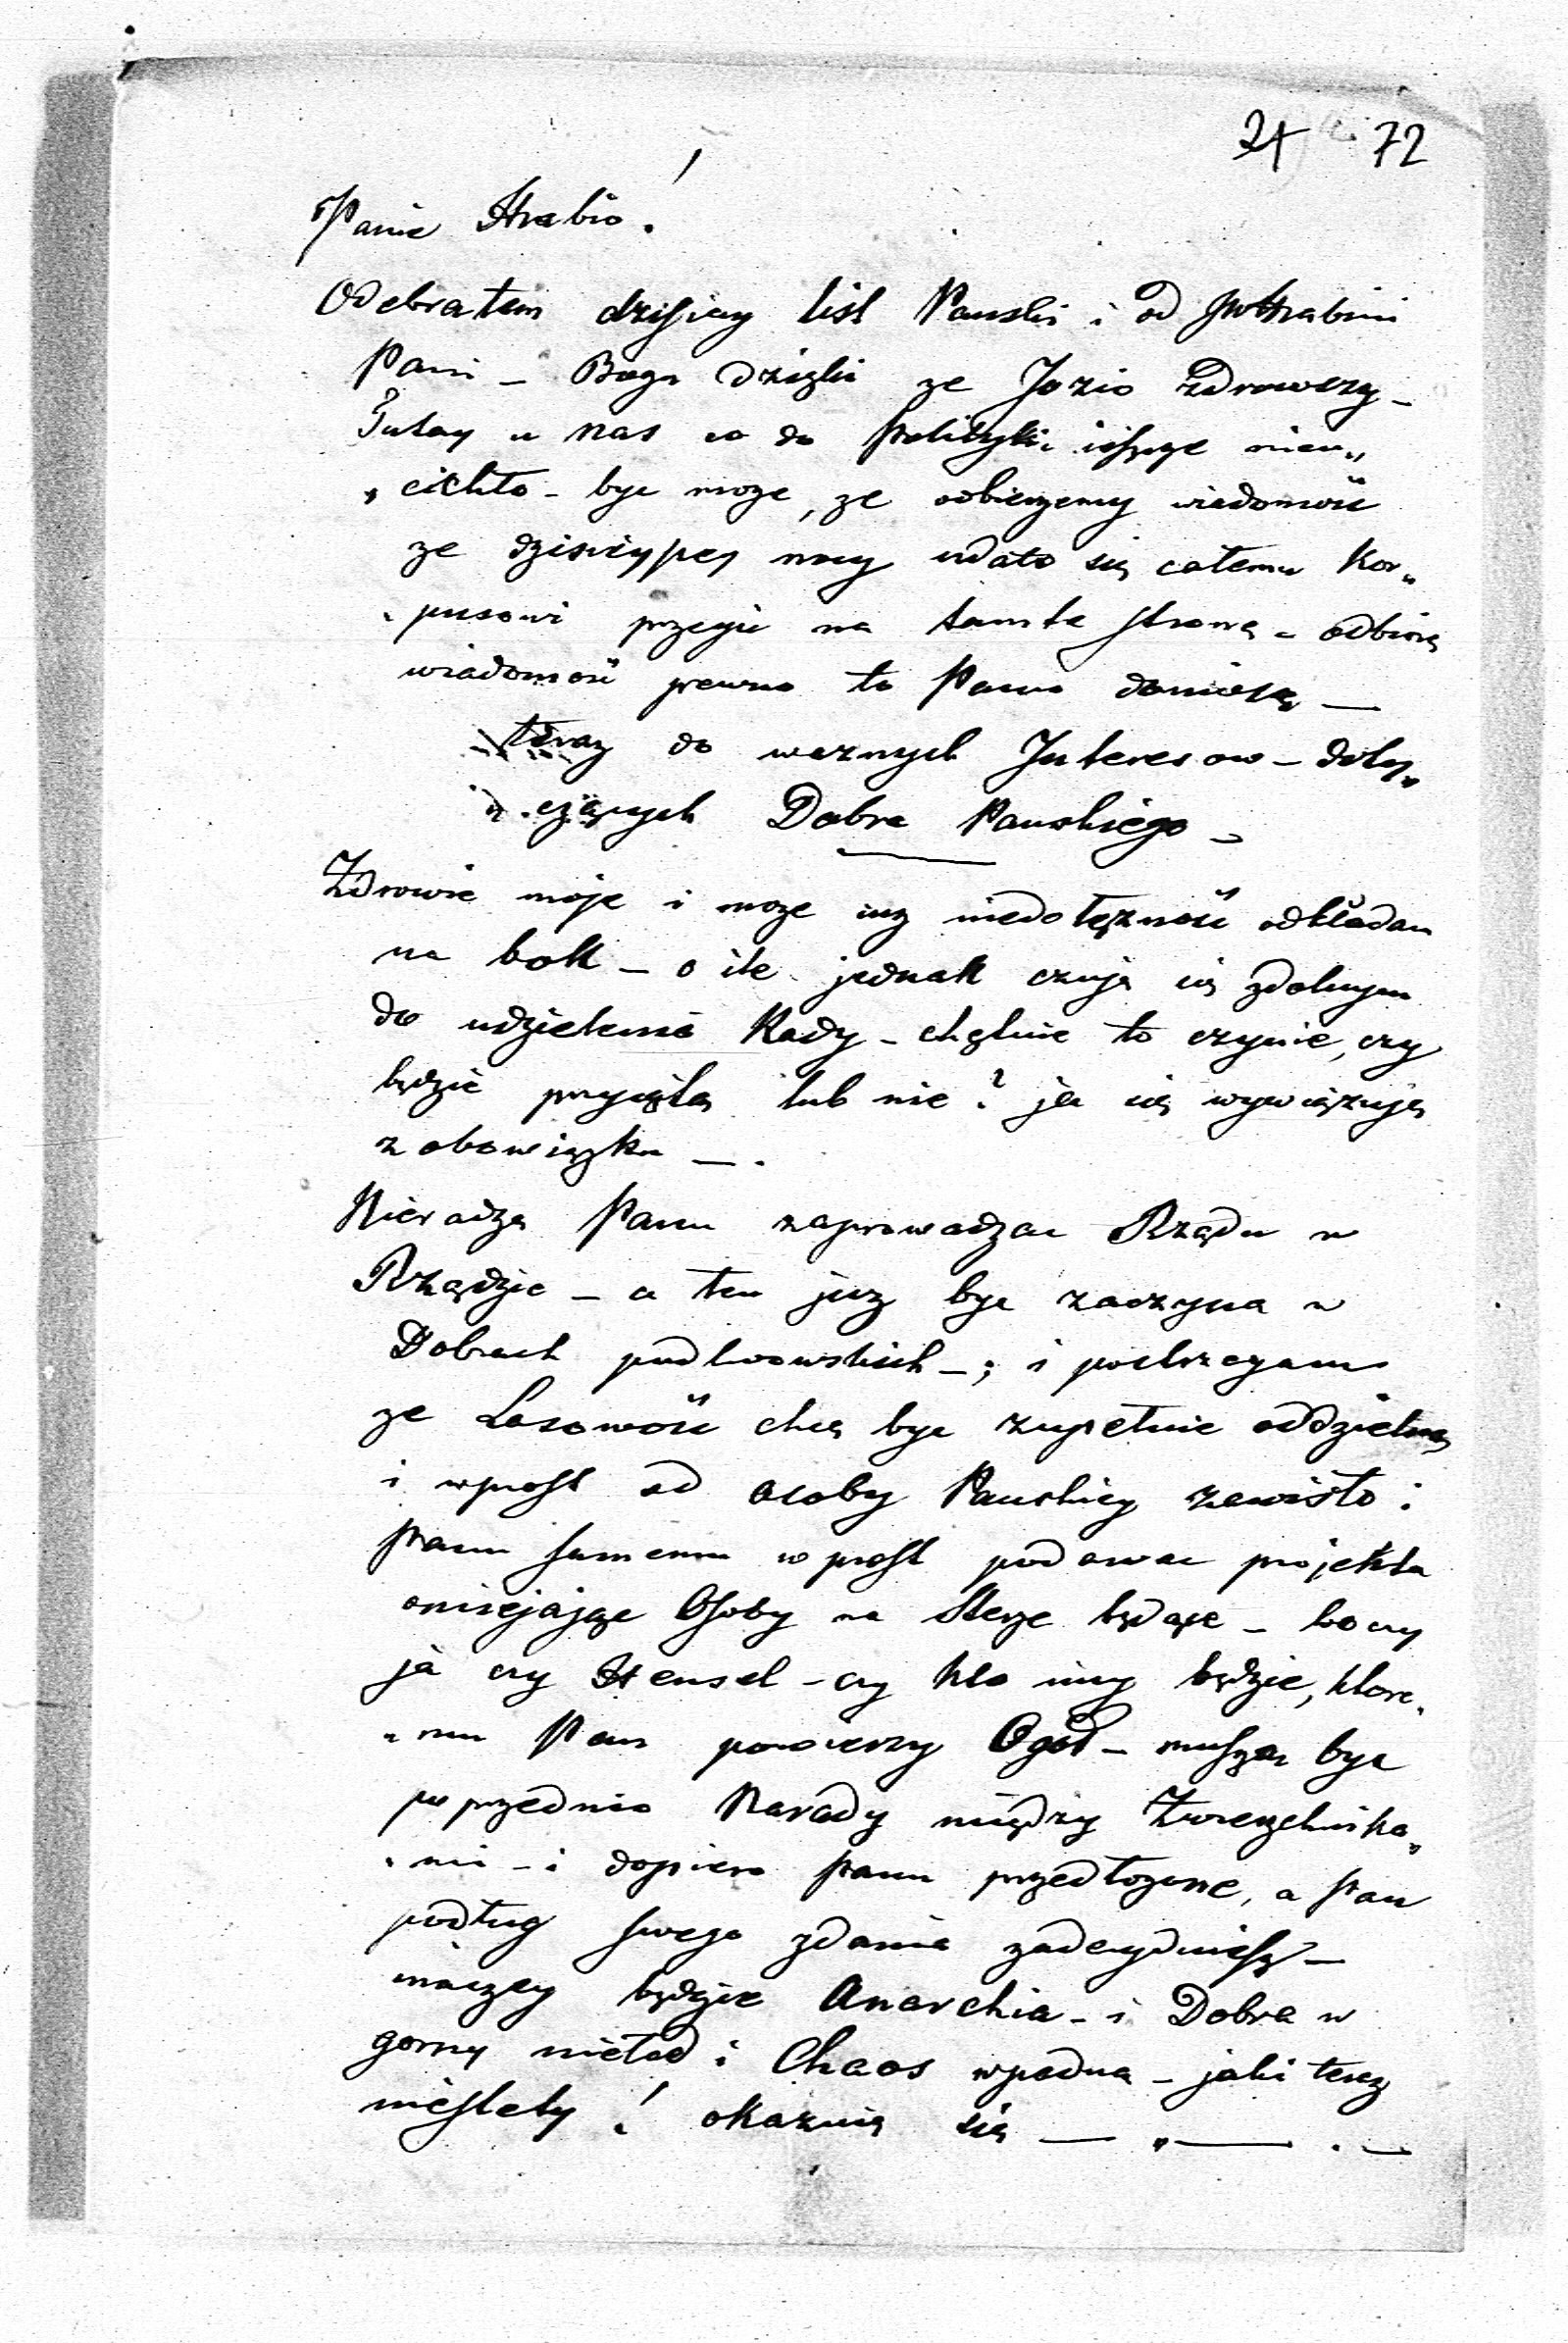 24 72
Panie Hrabio!
Odebrałem dzisiay list Panski i od JWHrabini
Pani – Bogu dzięki ze Jozio zdrowszy –
Tutay u nas co do Polityki ieszcze nieu„
„cichło – byc moze, ze odbierzemy wiadomość
ze dzisieyszej nocy udało się całemu Kor„
„pusowi przejść na tamte stronę – odbiorę
wiadomość pewno to Panu doniosę —
teraz do waznych Interesow – doty„
„czących Dobra Panskiego –
Zdrowie moje i moze iuz niedołęzność odkładam
na bok – o ile jednak czuję się zdolnym
do udzielenia Rady – chętnie to czynie, czy
będzie przyięta lub nie? ja się wywiązuję
z obowiązku —.
Nieradzę Panu zaprowadzac Rządu w
Rządzie – a ten juz byc zaczyna w
Dobrach podlwowskich –; i postrzegam
ze Lasowość chcę byc zupełnie oddzielną
i wprost od osoby Panskiey zawisło i
Panu samemu wprost podawac projekta
omiejając Osoby na Sterze będące – bo czy
ja czy Hensel – czy kto inny będzie, ktore„
„mu Pan powierzy Ogół – muszą byc
poprzednio Narady między Zwierzchnika„
„mi – i dopiero Panu przedłozone, a Pan
podług swego zdania zadecydujesz –
inaczey będzie Anarchia – i Dobra w
gorszy nieład i Chaos wpadną – jaki teraz
niestety! okazuie się — „ — . —